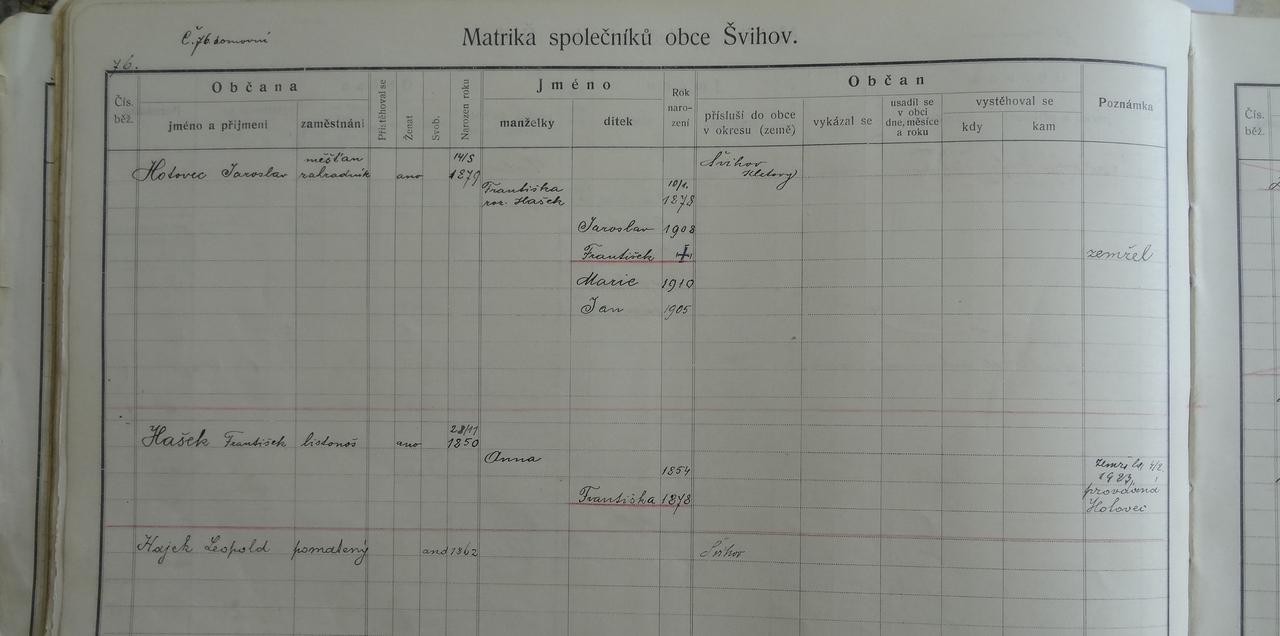 Č. 76 domovní
Matrika společníků obce Švihov.
76.
Čís. běž.
Občana
jméno a příjmení
zaměstnání
Přistěhoval se
Ženat
Svob.
Narozen roku
Jméno
manželky
dítek
Rok naro- zení
Občan
přísluší do obce v okresu (země)
vykázal se
usadil se v obci dne, měsíce a roku
vystěhoval se
kdy
kam
Poznámka
Čís. běž.
měšťan 14/5
Hotovec Jaroslav zahradník ano 1879 Švihov
Klatovy
Františka 10/1.
roz. Hašek 1878
Jaroslav 1908
František + zemřel
Marie 1910
Jan 1905
28/11
Hašek František listonoš ano 1850
Anna
1854 zemřela 4/2
1923
Františka 1878 provdaná
Hotovec
Hajek Leopold pomatený ano 1862 Švihov